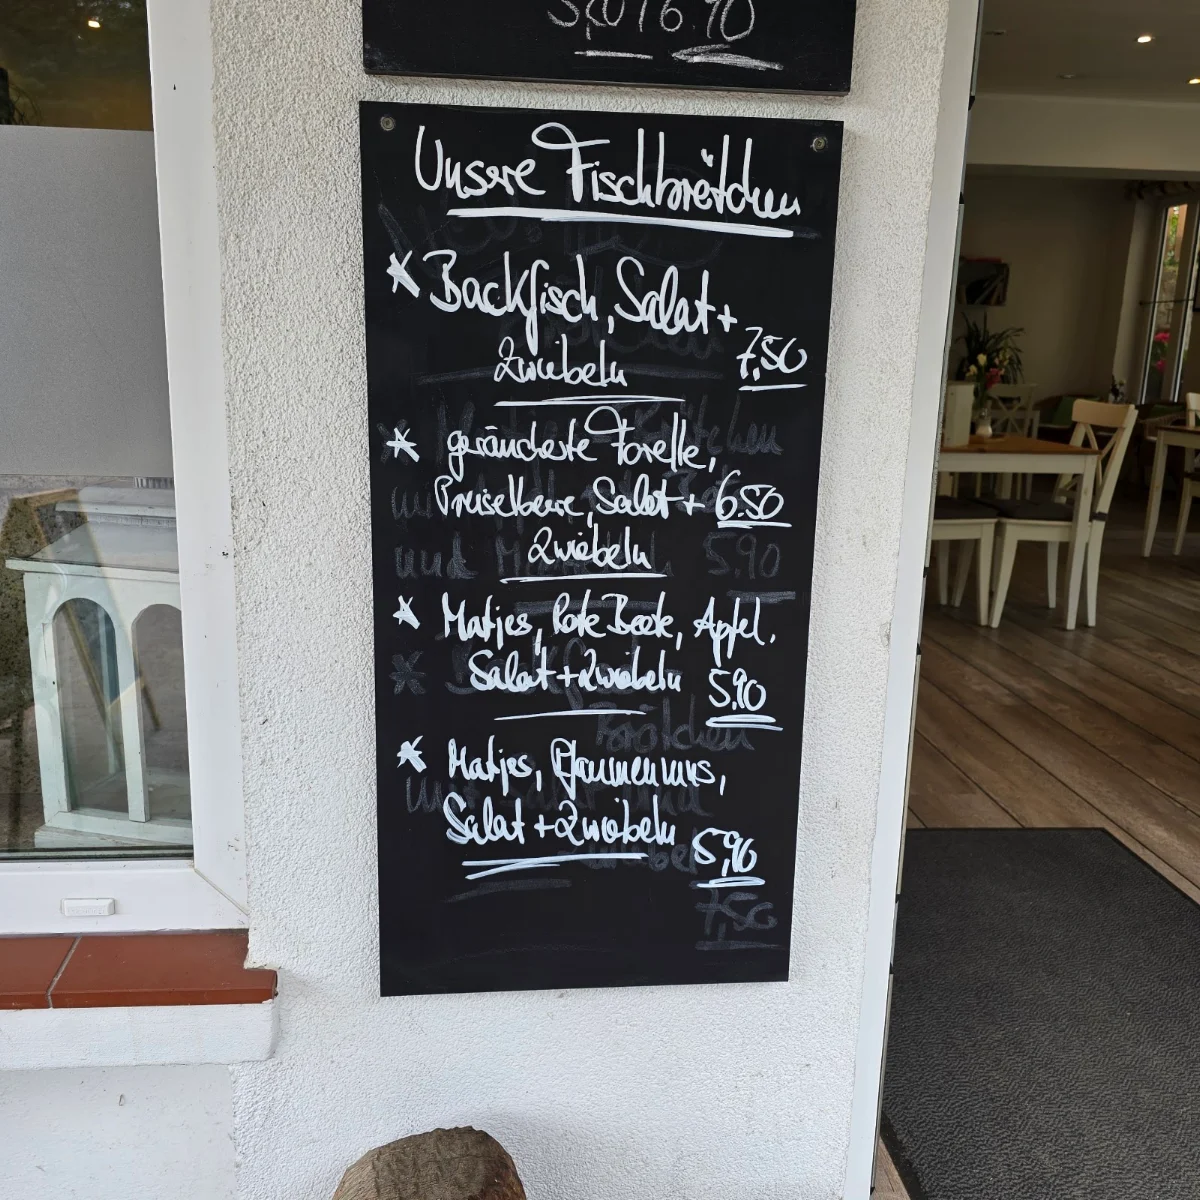 16.90
Unsere Fischbrötchen
* Backfisch, Salat +
Zwiebeln 7,50
* geräucherte Forelle,
Preiselbeere, Salat + 6.50
Zwiebeln
* Matjes, Rote Beete, Apfel,
Salat + Zwiebeln 5,90
* Matjes, Pflaumenmus,
Salat + Zwiebeln 5,90
7,50